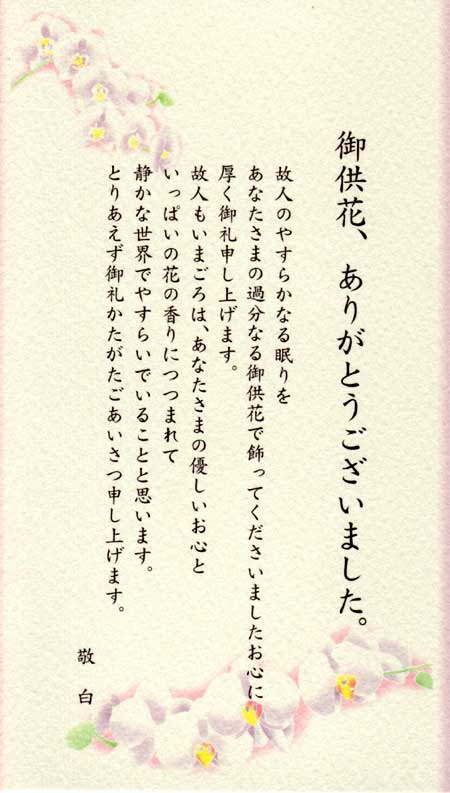 御供花、ありがとうございました。
故人のやすらかなる眠りを
あなたさまの過分なる御供花で飾ってくださいましたお心に
厚く御礼申し上げます。
故人もいまごろは、あなたさまの優しいお心と
いっぱいの花の香りにつつまれて
静かな世界でやすらいでいることと思います。
とりあえず御礼かたがたごあいさつ申し上げます。
敬白